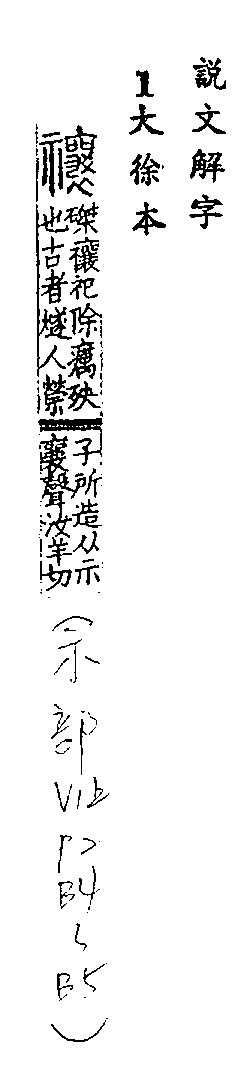 説文解字
1大徐本
禳 磔禳祀除癘殃
也古者燧人禜
子所造从示
襄聲汝羊切
(示部V1上 B4~B5)